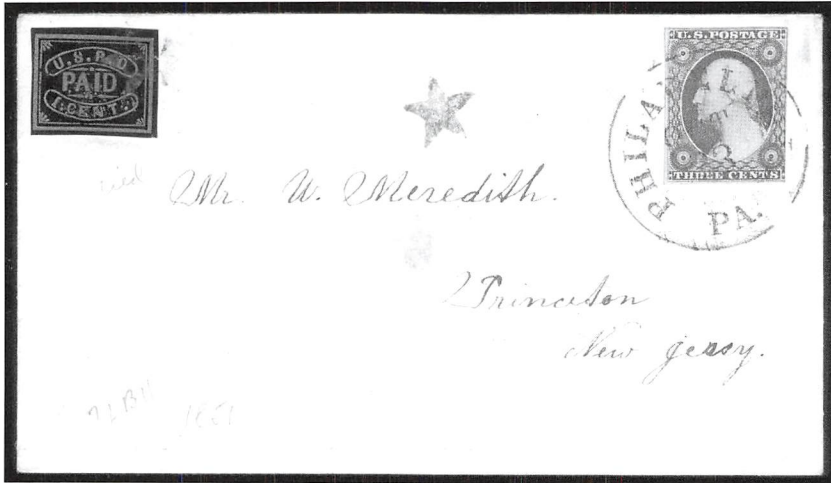 U.S.P.O.
PAID
1 CENT.
U.S. POSTAGE
THREE CENTS
PHILADELPHIA
PA.
Mr. W. Meredith.
Princeton
New Jersey.
7LB11
1851